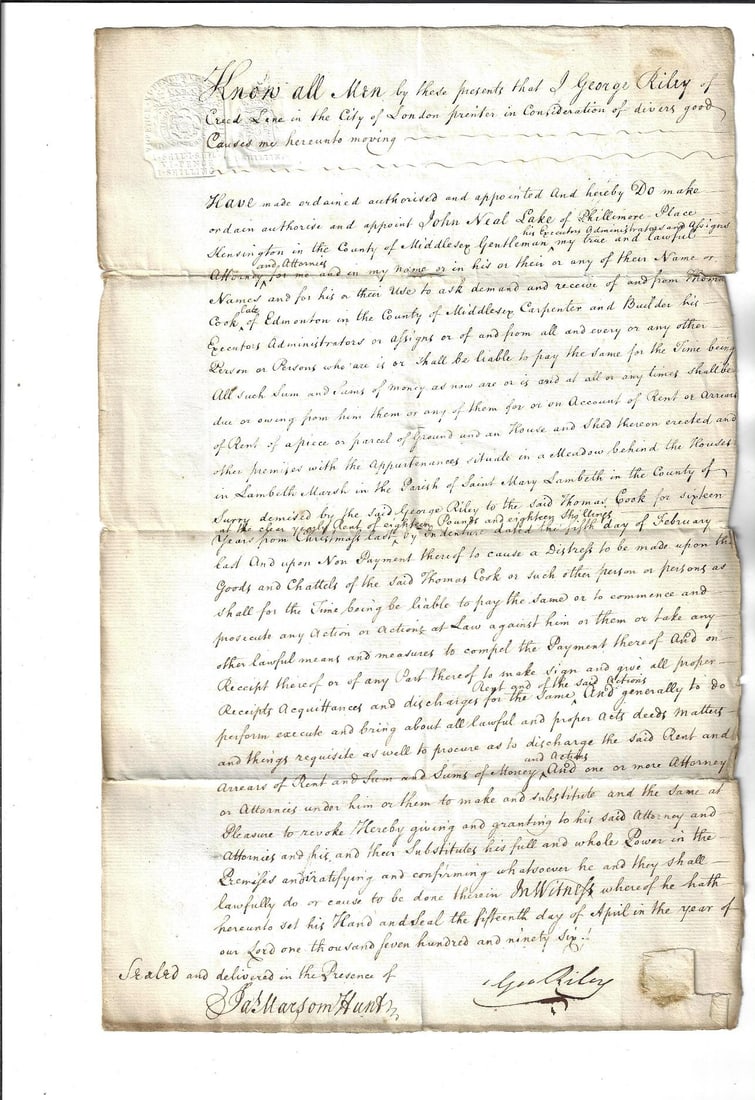 Know all Men by these presents that I George Riley of
Creed Lane in the City of London printer in Consideration of divers good
Causes me hereunto moving
Have made ordained authorised and appointed And hereby Do make
ordain authorise and appoint John Neal Lake of Phillimore Place
his Executors Administrators and Assigns
Kensington in the County of Middlesex Gentleman ^ my true and lawful
and Attornies
Attorney ^ for me and in my name or in his or their or any of their Name or
Names and for his or their Use to ask demand and receive of and from Thomas
late
Cook ^ of Edmonton in the County of Middlesex Carpenter and Builder his
Executors Administrators or Assigns or of and from all and every or any other
Person or Persons who are is or shall be liable to pay the same for the Time being
All such Sum and Sums of Money as now are or is and at all or any times shall be
due or owing from him them or any of them for or on Account of Rent or Arrears
of Rent of a piece or parcel of Ground and an House and Shed thereon erected and
other premises with the Appurtenances situate in a Meadow behind the Houses
in Lambeth Marsh in the Parish of Saint Mary Lambeth in the County of
Surry demised by the said George Riley to the said Thomas Cook for sixteen
at the clear yearly Rent of eighteen Pounds and eighteen Shillings
Years from Christmass last ^ by Indenture dated the fifth day of February
last And upon Non Payment thereof to cause a Distress to be made upon the
Goods and Chattels of the said Thomas Cook or such other person or persons as
shall for the Time being be liable to pay the same or to commence and
prosecute any Action or Actions at Law against him or them or take any
other lawful means and measures to compel the Payment thereof And on
Receipt thereof or of any Part thereof to make sign and give all proper
Rent and of the said Actions
Receipts Acquittances and discharges for the same ^ And generally to do
perform execute and bring about all lawful and proper Acts deeds Matters
and things requisite as well to procure as to discharge the said Rent and
and Actions
Arrears of Rent and Sum and Sums of Money ^ And one or more Attorney
or Attornies under him or them to make and substitute and the same at
Pleasure to revoke Hereby giving and granting to his said Attorney and
Attornies and his and their Substitutes his full and whole Power in the
Premises and ratifying and confirming whatsoever he and they shall
lawfully do or cause to be done therein In Witness whereof he hath
hereunto set his Hand and Seal the fifteenth day of April in the year of
our Lord one thousand seven hundred and ninety six
Sealed and delivered in the Presence of
Geo Riley
Jas Marsom Hunt